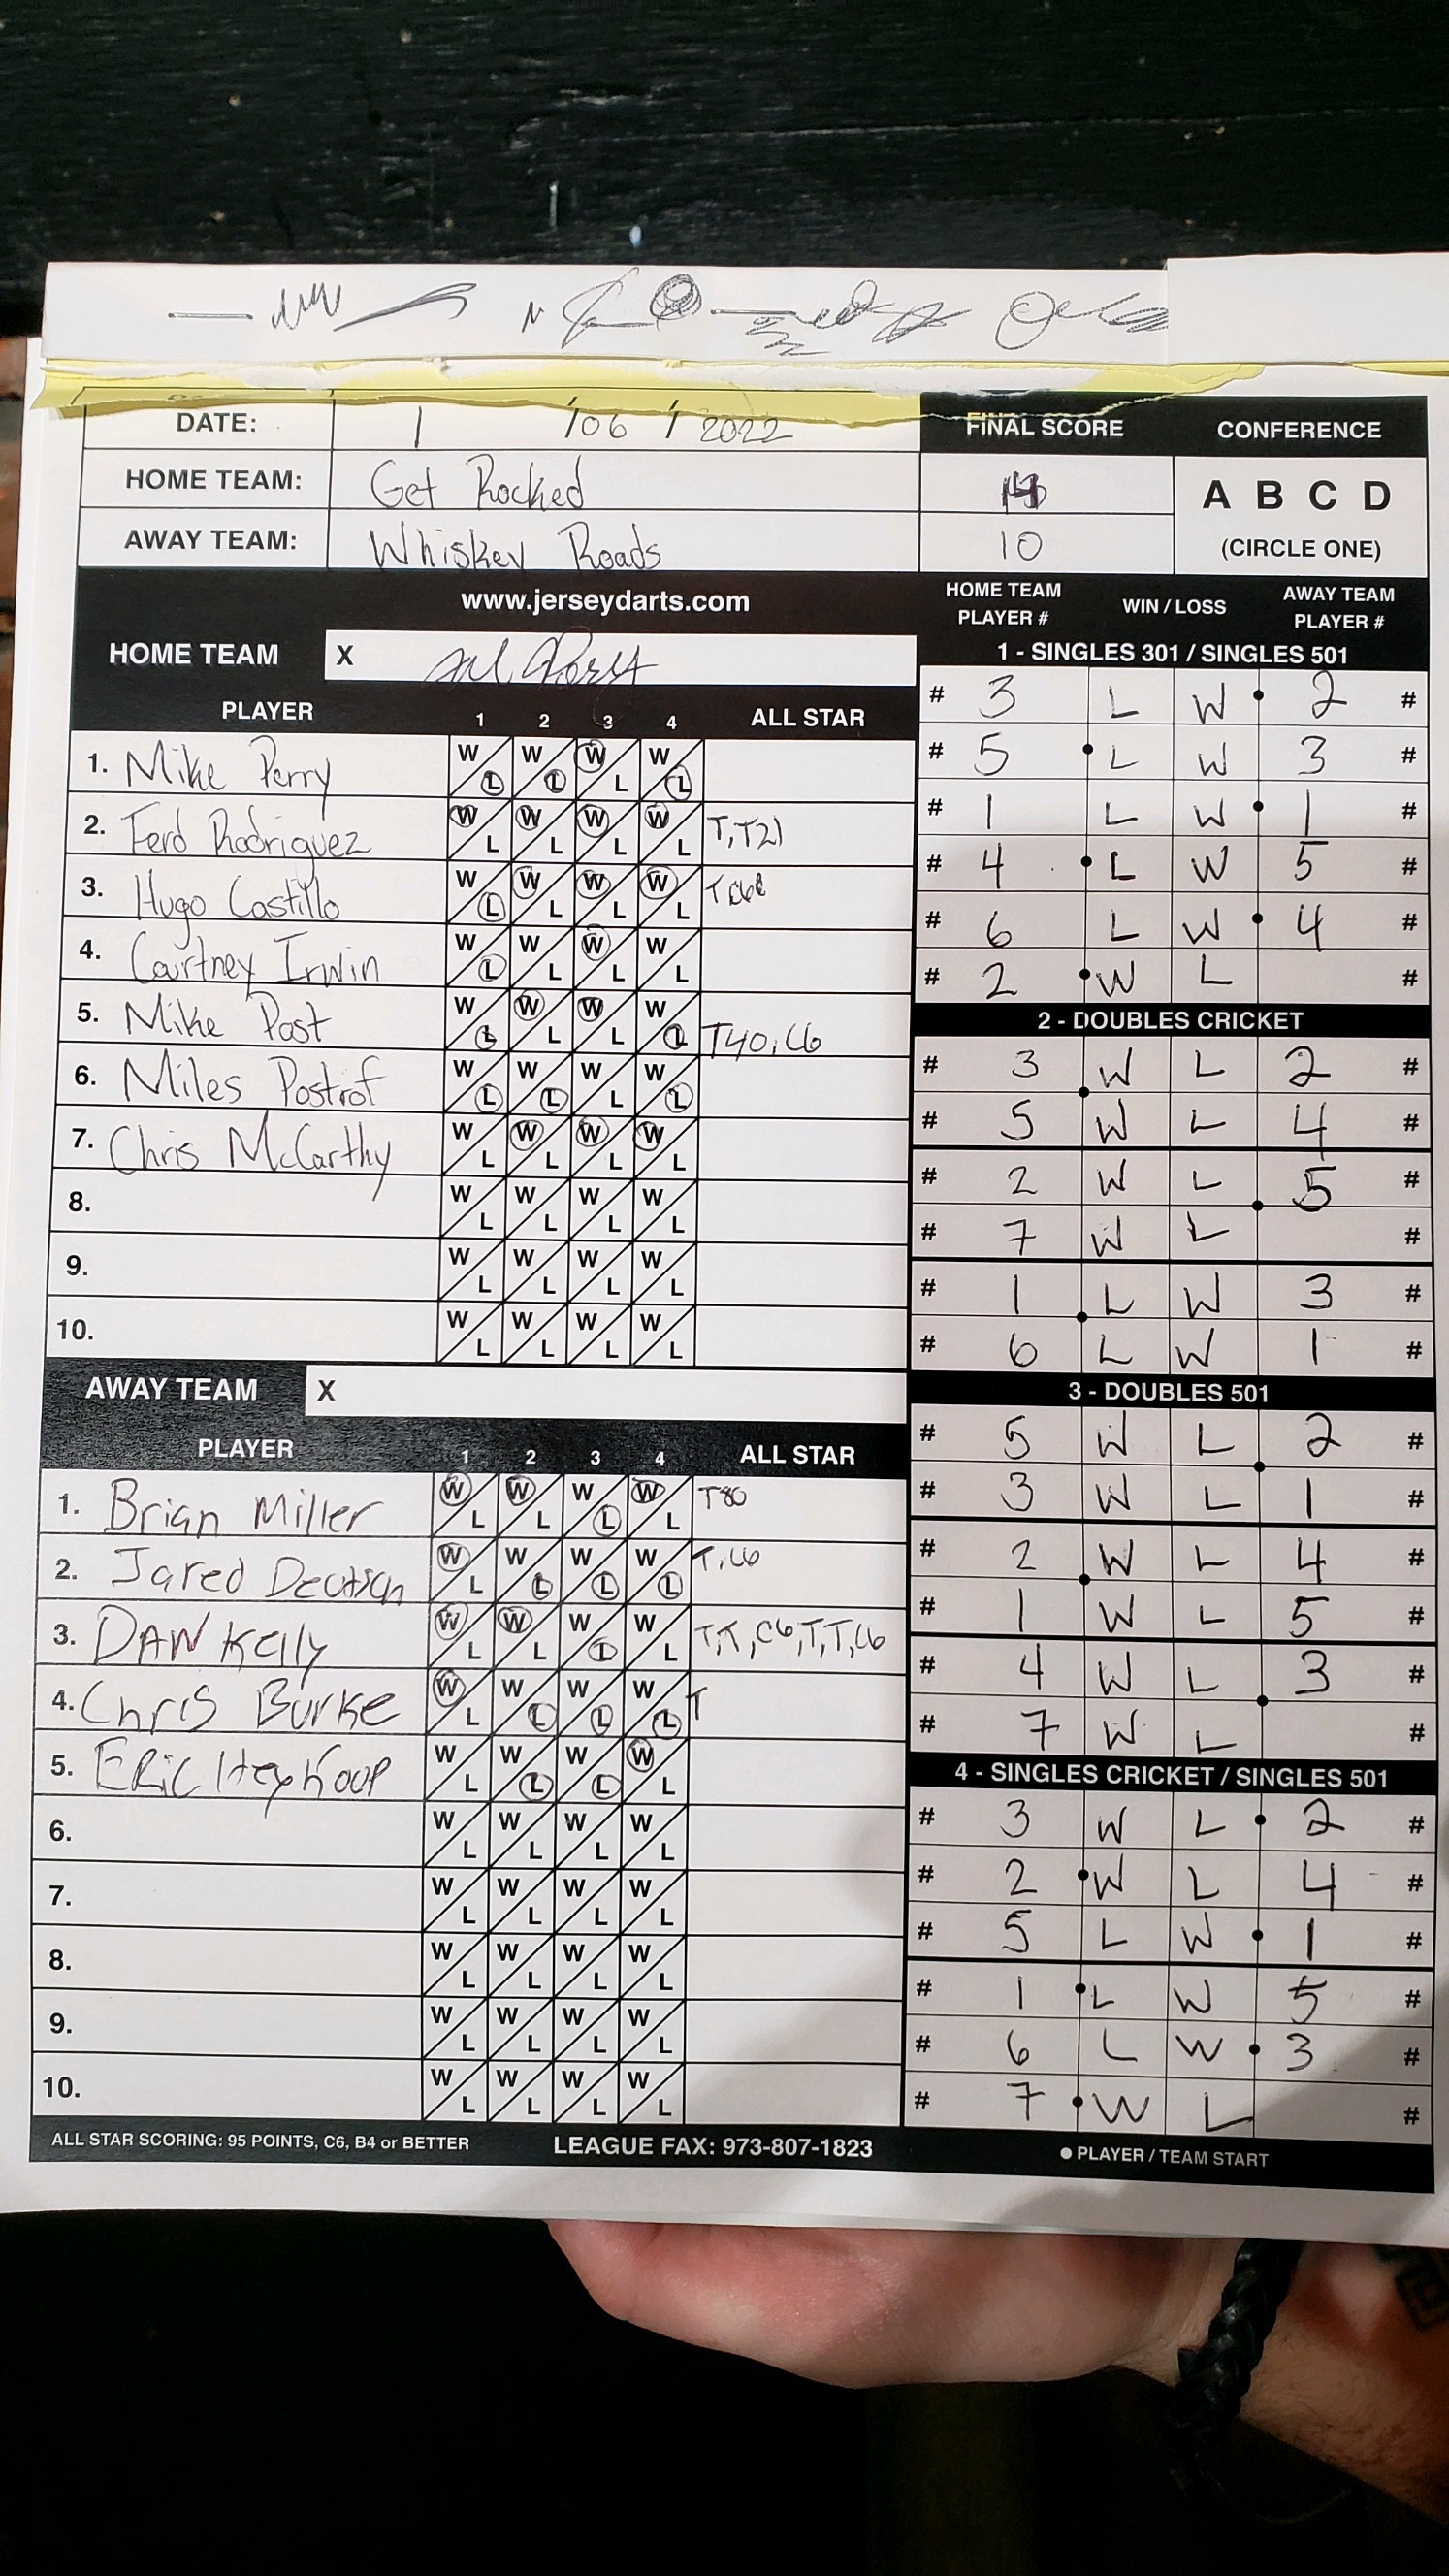 DATE: 1 / 06 / 2022 FINAL SCORE CONFERENCE
HOME TEAM: Get Rocked A B C D
AWAY TEAM: Whiskey Roads 10 (CIRCLE ONE)
www.jerseydarts.com
HOME TEAM X
PLAYER 1 2 3 4 ALL STAR
1. Mike Perry W L W L W L W L
2. Ferd Rodriguez W L W L W L W L T, T21
3. Hugo Castillo W L W L W L W L
4. Courtney Irwin W L W L W L W L
5. Mike Post W L W L W L W L T40, C6
6. Miles Postrof W L W L W L W L
7. Chris McCarthy W L W L W L W L
8. W L W L W L W L
9. W L W L W L W L
10. W L W L W L W L
AWAY TEAM X
PLAYER 1 2 3 4 ALL STAR
1. Brian Miller W L W L W L W L T80
2. Jared Deutsch W L W L W L W L T, C6
3. DAN Kelly W L W L W L W L T, T, C6, T, T, C6
4. Chris Burke W L W L W L W L T
5. ERic W L W L W L W L
6. W L W L W L W L
7. W L W L W L W L
8. W L W L W L W L
9. W L W L W L W L
10. W L W L W L W L
ALL STAR SCORING: 95 POINTS, C6, B4 or BETTER LEAGUE FAX: 973-807-1823
HOME TEAM PLAYER # WIN / LOSS AWAY TEAM PLAYER #
1 - SINGLES 301 / SINGLES 501
# 3 L W 2 #
# 5 L W 3 #
# 1 L W 1 #
# 4 L W 5 #
# 6 L W 4 #
# 2 W L #
2 - DOUBLES CRICKET
# 3 W L 2 #
# 5 W L 4 #
# 2 W L 5 #
# 7 W L #
# 1 L W 3 #
# 6 L W 1 #
3 - DOUBLES 501
# 5 W L 2 #
# 3 W L 1 #
# 2 W L 4 #
# 1 W L 5 #
# 4 W L 3 #
# 7 W L #
4 - SINGLES CRICKET / SINGLES 501
# 3 W L 2 #
# 2 W L 4 #
# 5 L W 1 #
# 1 L W 5 #
# 6 L W 3 #
# 7 W L #
PLAYER / TEAM START